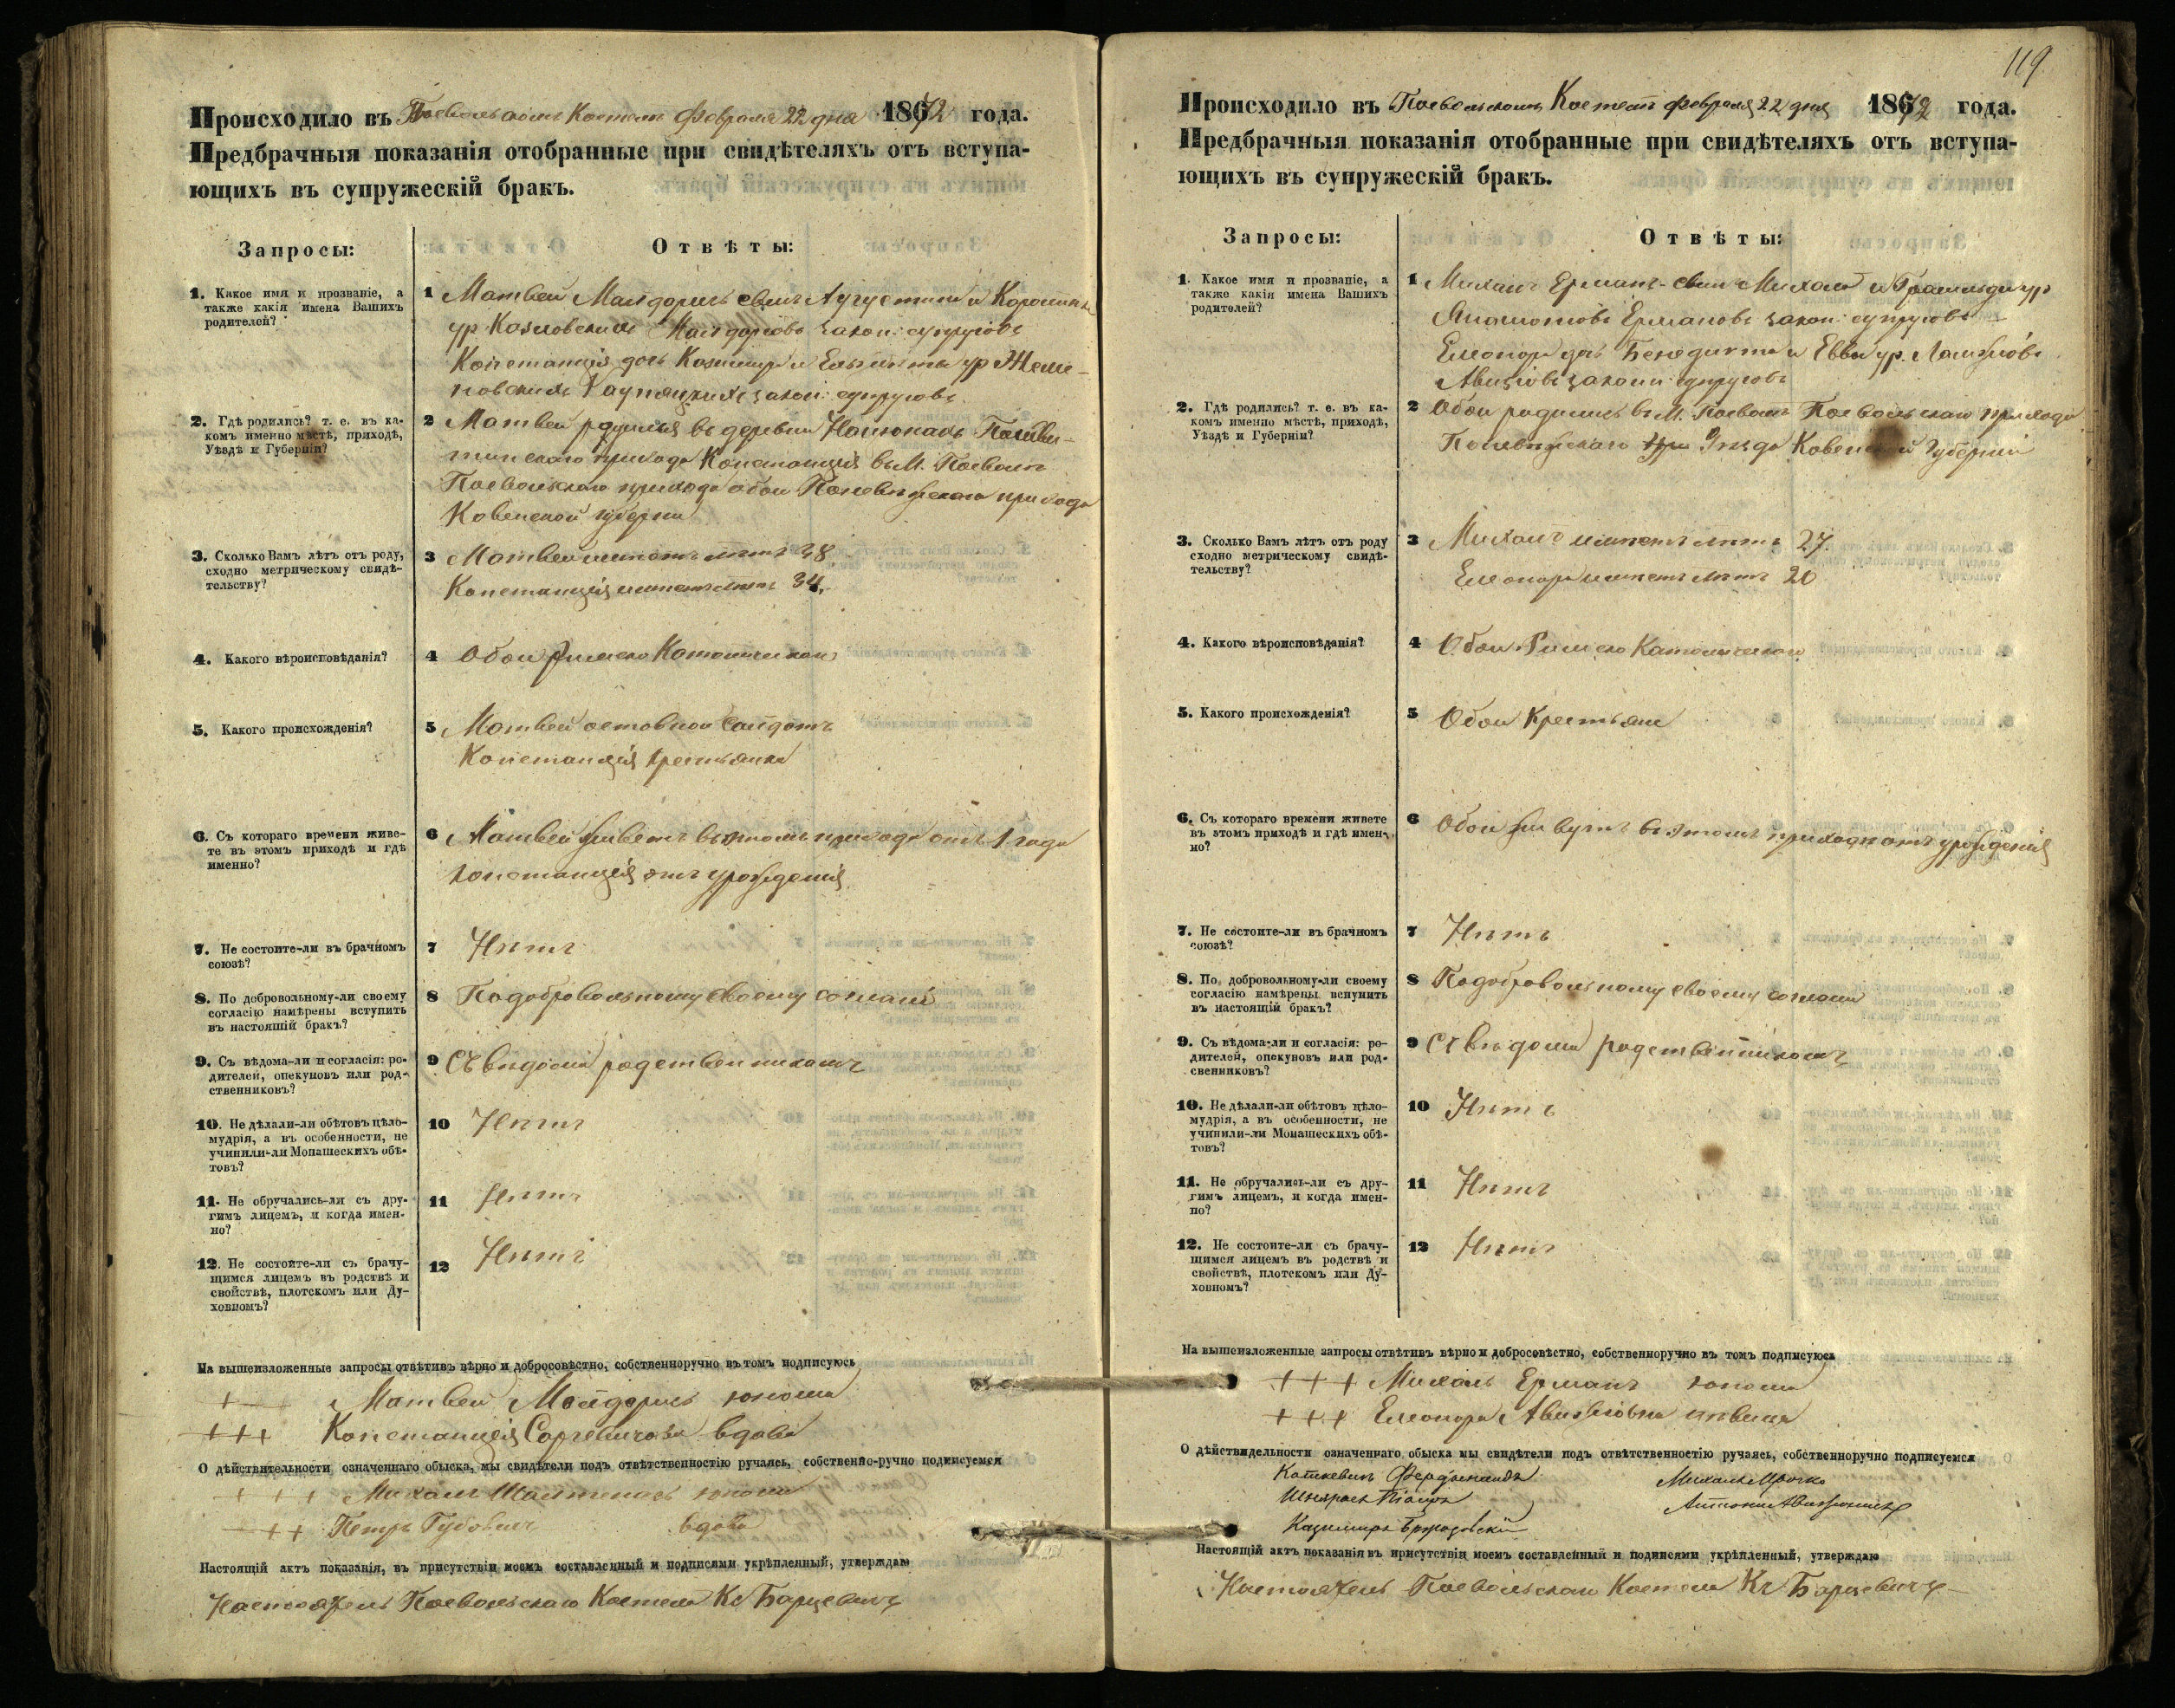 Происходило въ Поевольскомъ Костелѣ Февраля 22 дня 1872 года.
Предбрачныя показанія отобранные при свидѣтеляхъ отъ вступа-
ющихъ въ супружескій бракъ.
Запросы: Отвѣты:
1. Какое имя и прозваніе, а
также какія имена Вашихъ
родителей?
1 Матвей сынъ Августина и
ур. Козловскихъ закон: супруговъ
Констанція дочь Казимира и ур
закон: супруговъ
2. Гдѣ родились? т. е. въ ка-
комъ именно мѣстѣ, приходѣ,
Уѣздѣ и Губерніи?
2 Матвей родился въ деревни
прихода Констанція въ М. Поеволѣ
Поевольскаго прихода обои Поневѣжскаго прихода
Ковенской губерніи
3. Сколько Вамъ лѣтъ отъ роду,
сходно метрическому свидѣ-
тельству?
3 Матвей имѣетъ лѣтъ 38
Констанція имѣетъ лѣтъ 34.
4. Какого вѣроисповѣданія?
4 Обои Римско Католическаго
5. Какого происхожденія?
5 Матвей
Констанція крестьянка
6. Съ котораго времени живе-
те въ этомъ приходѣ и гдѣ
именно?
6 Матвей живетъ въ этомъ приходѣ отъ 1 года
Констанція отъ урожденія
7. Не состоите-ли въ брачномъ
союзѣ?
7 Нѣтъ
8. По добровольному-ли своему
согласію намѣрены вступить
въ настоящій бракъ?
8 По добровольному своему
9. Съ вѣдома-ли и согласія: ро-
дителей, опекуновъ или род-
ственниковъ?
9 Съ вѣдома родственниковъ
10. Не дѣлали-ли обѣтовъ цѣло-
мудрія, а въ особенности, не
учинили-ли Монашескихъ обѣ-
товъ?
10 Нѣтъ
11. Не обручались-ли съ дру-
гимъ лицемъ, и когда имен-
но?
11 Нѣтъ
12. Не состоите-ли съ брачу-
щимся лицемъ въ родствѣ и
свойствѣ, плотскомъ или Ду-
ховномъ?
12 Нѣтъ
На вышеизложенные запросы отвѣтивъ вѣрно и добросовѣстно, собственноручно въ томъ подписуюсь
+ Матвей юноша
+++ Констанція вдова
О дѣйствительности означеннаго обыска, мы свидѣтели подъ отвѣтственностію ручаясь, собственно-ручно подписуемся
+++ Михалъ юноша
+++ Петръ Губовичъ вдовъ
Настоящій актъ показанія, въ присутствіи моемъ составленный и подписями укрѣпленный, утверждаю
Настоятель Поевольскаго Костела Кс Барцевичъ
119
Происходило въ Поевольскомъ Костелѣ Февраля 22 дня 1872 года.
Предбрачныя показанія отобранные при свидѣтеляхъ отъ вступа-
ющихъ въ супружескій бракъ.
Запросы: Отвѣты:
1. Какое имя и прозваніе, а
также какія имена Вашихъ
родителей?
1 Михалъ Ерманъ сынъ Михала и ур
Ермановъ закон: супруговъ
Елеонора дочь Бенедикта и Еввы ур.
закон: супруговъ
2. Гдѣ родились? т. е. въ ка-
комъ именно мѣстѣ, приходѣ,
Уѣздѣ и Губерніи?
2 Обои родились въ М. Поеволѣ Поевольскаго прихода
Поневѣжскаго Уѣзда Ковенской Губерніи
3. Сколько Вамъ лѣтъ отъ роду
сходно метрическому свидѣ-
тельству?
3 Михалъ имѣетъ лѣтъ 27.
Елеонора имѣетъ лѣтъ 20
4. Какого вѣроисповѣданія?
4 Обои Римско Католическаго
5. Какого происхожденія?
5 Обои Крестьяне
6. Съ котораго времени живете
въ этомъ приходѣ и гдѣ имен-
но?
6 Обои живутъ въ этомъ приходѣ отъ урожденія
7. Не состоите-ли въ брачномъ
союзѣ?
7 Нѣтъ
8. По добровольному-ли своему
согласію намѣрены вспупить
въ настоящій бракъ?
8 По добровольному своему согласію
9. Съ вѣдома-ли и согласія: ро-
дителей, опекуновъ или род-
свенниковъ?
9 Съ вѣдома родственниковъ
10. Не дѣлали-ли обѣтовъ цѣло-
мудрія, а въ особенности, не
учинили-ли Монашескихъ обѣ-
товъ?
10 Нѣтъ
11. Не обручались-ли съ дру-
гимъ лицемъ, и когда имен-
но?
11 Нѣтъ
12. Не состоите-ли съ брачу-
щимся лицемъ въ родствѣ и
свойствѣ, плотскомъ или Ду-
ховномъ?
12 Нѣтъ
На вышеизложенные запросы отвѣтивъ вѣрно и добросовѣстно, собственноручно въ томъ подписуюсь
+++ Михалъ Ерманъ юноша
+++ Елеонора дѣвица
О дѣйствидельности означеннаго обыска мы свидѣтели подъ отвѣтственностію ручаясь, собственноручно подписуемся
Фердинандъ Михалъ
Антони
Казимиръ
Настоящій актъ показанія въ присутствіи моемъ составленный и подписями укрѣпленный, утверждаю
Настоятель Поевольскаго Костела Кс Барцевичъ